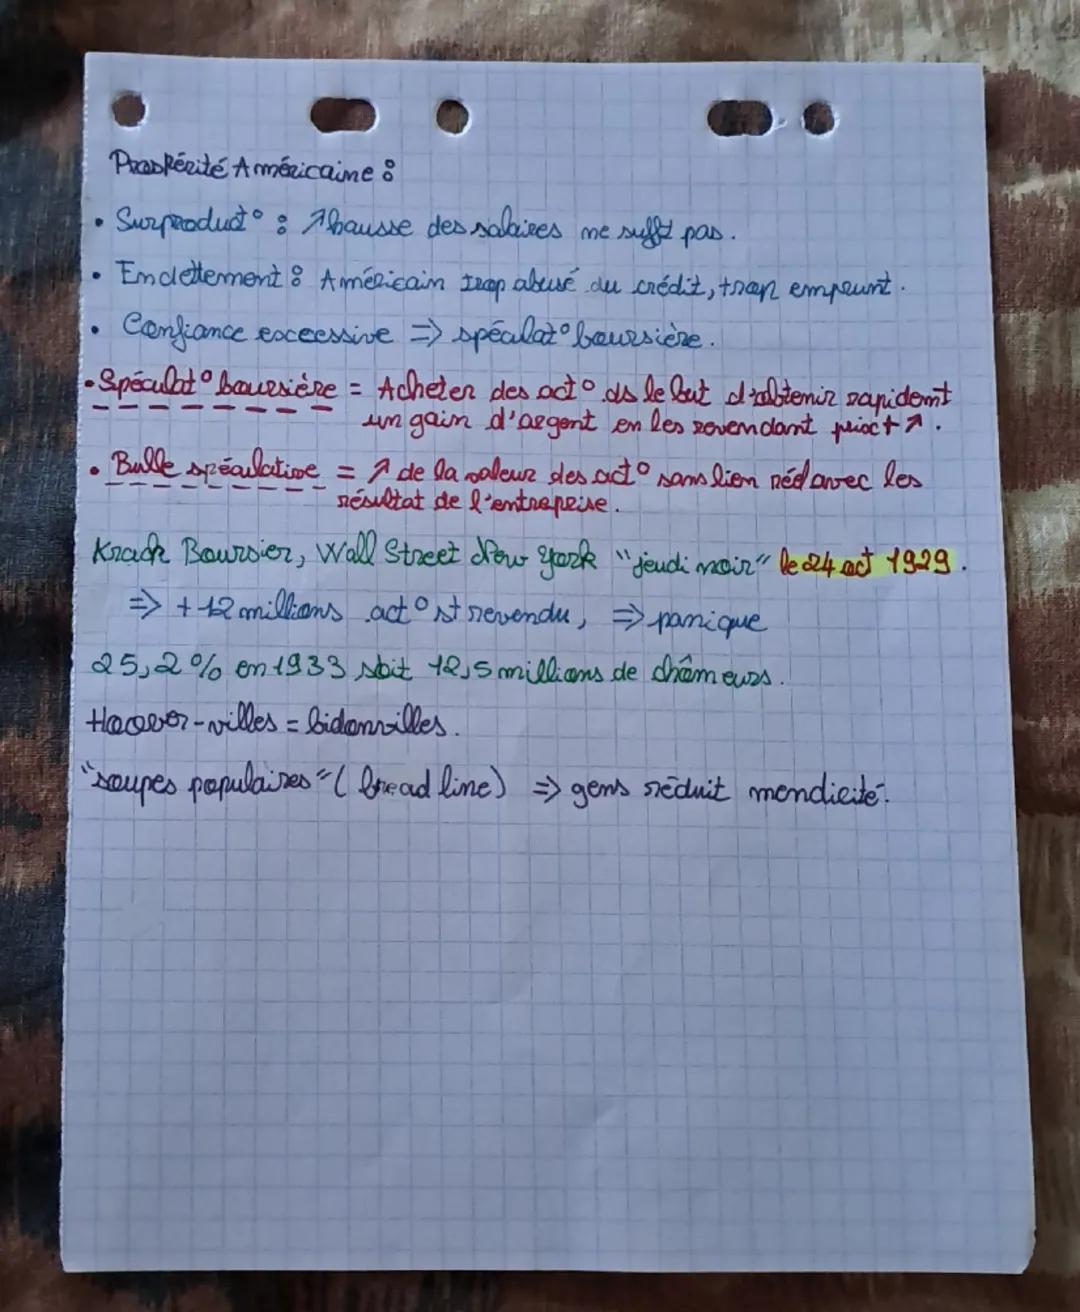 Prospérité Américaine :
• Surproduct° : ↗ hausse des salaires ne suffit pas.
• Endettement : Américain trop abusé du crédit, trop emprunt.
• Confiance excessive => spéculat° boursière.
• Spéculat° boursière = Acheter des act° ds le but d'obtenir rapidemt
un gain d'argent en les revendant prix + ↗.
• Bulle spéculative = ↗ de la valeur des act° sans lien réel avec les
résultat de l'entreprise.
Krach Boursier, Wall Street New York "jeudi noir" le 24 oct 1929.
=> + 12 millions act° st revendu, => panique
25,2 % en 1933 soit 12,5 millions de chômeurs.
Hoover-villes = bidonvilles.
"soupes populaires" (bread line) => gens réduit mendicité.